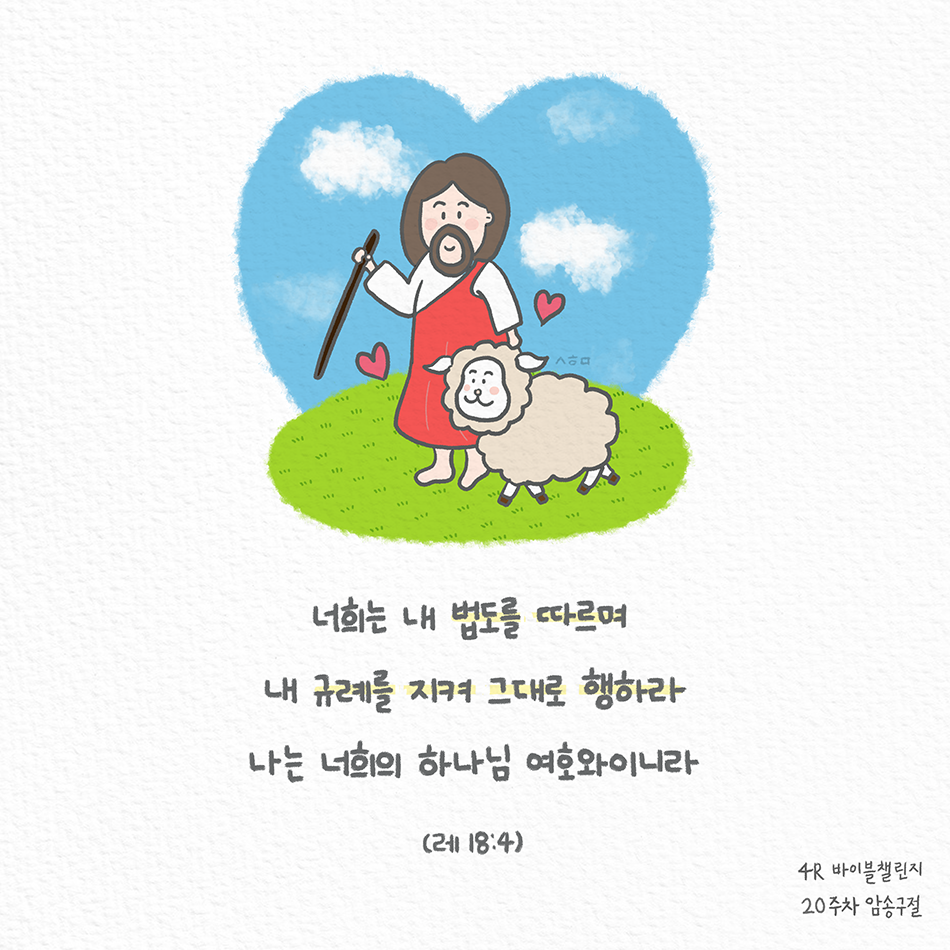 ㅅㅎㅁ
너희는 내 법도를 따르며
내 규례를 지켜 그대로 행하라
나는 너희의 하나님 여호와이니라
(레 18:4)
4R 바이블챌린지
20주차 암송구절